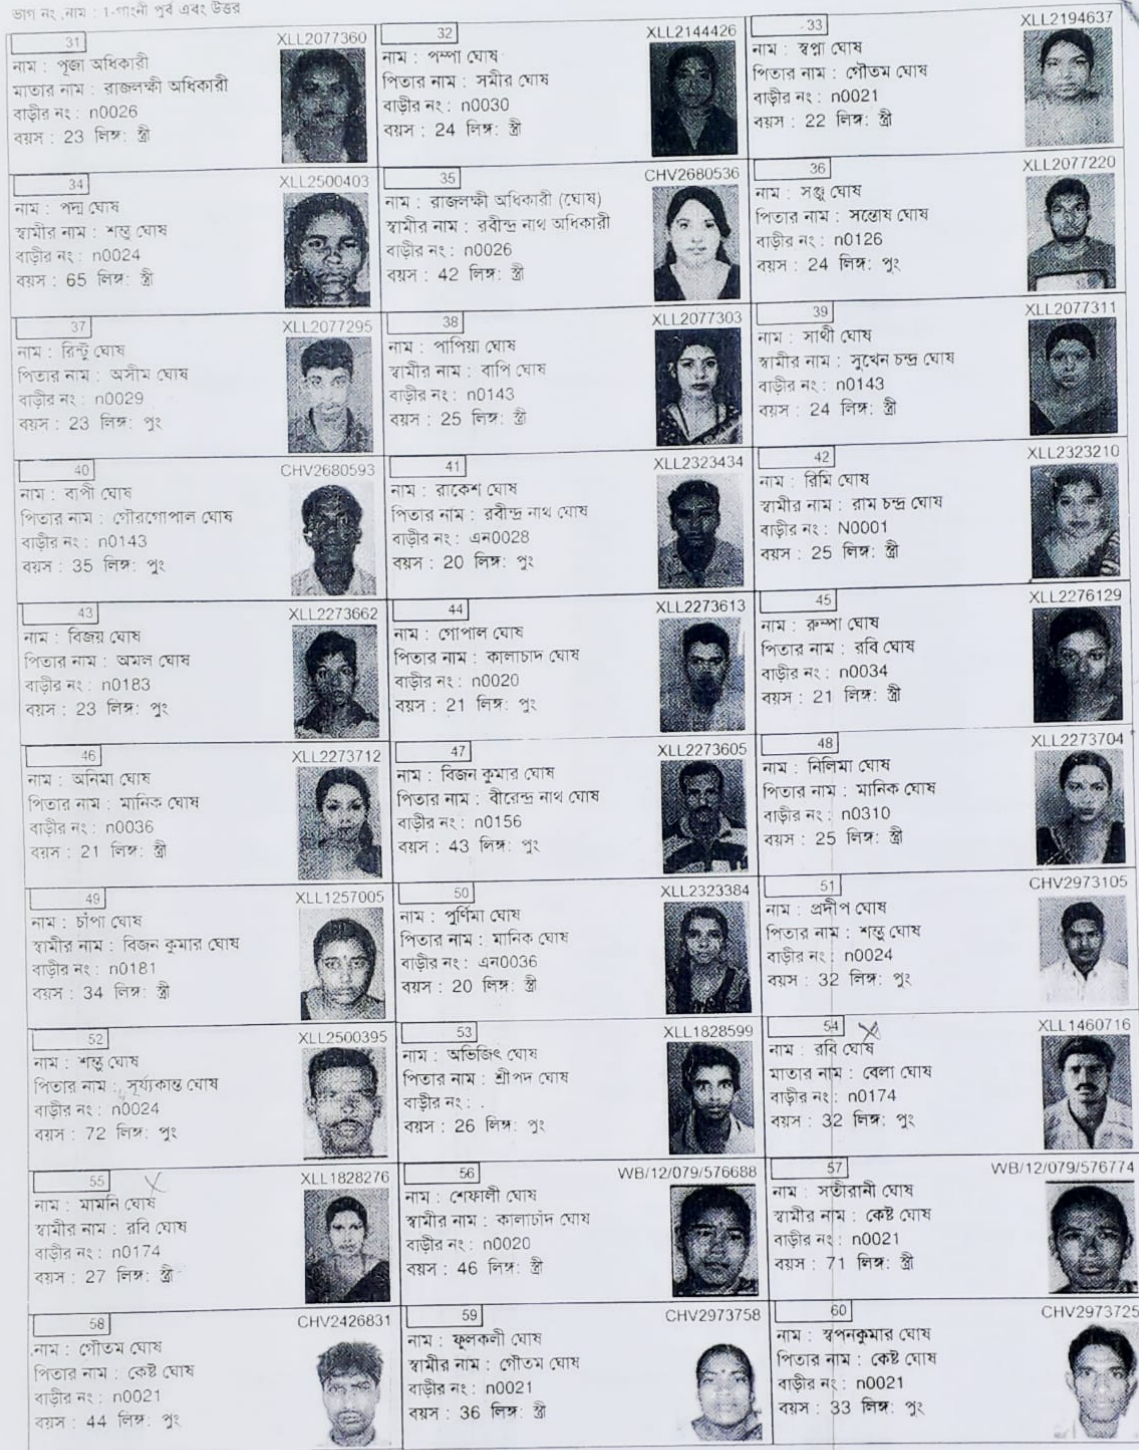 ভাগ নং ,নাম : 1-গাংনী পূর্ব এবং উত্তর
31 XLL2077360
নাম : পূজা অধিকারী
মাতার নাম : রাজলক্ষী অধিকারী
বাড়ীর নং : n0026
বয়স : 23 লিঙ্গ: স্ত্রী
32 XLL2144426
নাম : পম্পা ঘোষ
পিতার নাম : সমীর ঘোষ
বাড়ীর নং : n0030
বয়স : 24 লিঙ্গ: স্ত্রী
33 XLL2194637
নাম : স্বপ্না ঘোষ
পিতার নাম : গৌতম ঘোষ
বাড়ীর নং : n0021
বয়স : 22 লিঙ্গ: স্ত্রী
34 XLL2500403
নাম : পদ্ম ঘোষ
স্বামীর নাম : শম্ভু ঘোষ
বাড়ীর নং : n0024
বয়স : 65 লিঙ্গ: স্ত্রী
35 CHV2680536
নাম : রাজলক্ষী অধিকারী (ঘোষ)
স্বামীর নাম : রবীন্দ্র নাথ অধিকারী
বাড়ীর নং : n0026
বয়স : 42 লিঙ্গ: স্ত্রী
36 XLL2077220
নাম : সঞ্জু ঘোষ
পিতার নাম : সন্তোষ ঘোষ
বাড়ীর নং : n0126
বয়স : 24 লিঙ্গ: পুং
37 XLL2077295
নাম : রিন্টু ঘোষ
পিতার নাম : অসীম ঘোষ
বাড়ীর নং : n0029
বয়স : 23 লিঙ্গ: পুং
38 XLL2077303
নাম : পাপিয়া ঘোষ
স্বামীর নাম : বাপি ঘোষ
বাড়ীর নং : n0143
বয়স : 25 লিঙ্গ: স্ত্রী
39 XLL2077311
নাম : সাথী ঘোষ
স্বামীর নাম : সুখেন চন্দ্র ঘোষ
বাড়ীর নং : n0143
বয়স : 24 লিঙ্গ: স্ত্রী
40 CHV2680593
নাম : বাপী ঘোষ
পিতার নাম : গৌরগোপাল ঘোষ
বাড়ীর নং : n0143
বয়স : 35 লিঙ্গ: পুং
41 XLL2323434
নাম : রাকেশ ঘোষ
পিতার নাম : রবীন্দ্র নাথ ঘোষ
বাড়ীর নং : এন0028
বয়স : 20 লিঙ্গ: পুং
42 XLL2323210
নাম : রিমি ঘোষ
স্বামীর নাম : রাম চন্দ্র ঘোষ
বাড়ীর নং : N0001
বয়স : 25 লিঙ্গ: স্ত্রী
43 XLL2273662
নাম : বিজয় ঘোষ
পিতার নাম : অমল ঘোষ
বাড়ীর নং : n0183
বয়স : 23 লিঙ্গ: পুং
44 XLL2273613
নাম : গোপাল ঘোষ
পিতার নাম : কালাচাদ ঘোষ
বাড়ীর নং : n0020
বয়স : 21 লিঙ্গ: পুং
45 XLL2276129
নাম : রুম্পা ঘোষ
পিতার নাম : রবি ঘোষ
বাড়ীর নং : n0034
বয়স : 21 লিঙ্গ: স্ত্রী
46 XLL2273712
নাম : অনিমা ঘোষ
পিতার নাম : মানিক ঘোষ
বাড়ীর নং : n0036
বয়স : 21 লিঙ্গ: স্ত্রী
47 XLL2273605
নাম : বিজন কুমার ঘোষ
পিতার নাম : বীরেন্দ্র নাথ ঘোষ
বাড়ীর নং : n0156
বয়স : 43 লিঙ্গ: পুং
48 XLL2273704
নাম : নিলিমা ঘোষ
পিতার নাম : মানিক ঘোষ
বাড়ীর নং : n0310
বয়স : 25 লিঙ্গ: স্ত্রী
49 XLL1257005
নাম : চাঁপা ঘোষ
স্বামীর নাম : বিজন কুমার ঘোষ
বাড়ীর নং : n0181
বয়স : 34 লিঙ্গ: স্ত্রী
50 XLL2323384
নাম : পুর্ণিমা ঘোষ
পিতার নাম : মানিক ঘোষ
বাড়ীর নং : এন0036
বয়স : 20 লিঙ্গ: স্ত্রী
51 CHV2973105
নাম : প্রদীপ ঘোষ
পিতার নাম : শম্ভু ঘোষ
বাড়ীর নং : n0024
বয়স : 32 লিঙ্গ: পুং
52 XLL2500395
নাম : শম্ভু ঘোষ
পিতার নাম : সূর্য্যকান্ত ঘোষ
বাড়ীর নং : n0024
বয়স : 72 লিঙ্গ: পুং
53 XLL1828599
নাম : অভিজিৎ ঘোষ
পিতার নাম : শ্রীপদ ঘোষ
বাড়ীর নং : .
বয়স : 26 লিঙ্গ: পুং
54 XLL1460716
নাম : রবি ঘোষ
মাতার নাম : বেলা ঘোষ
বাড়ীর নং : n0174
বয়স : 32 লিঙ্গ: পুং
55 XLL1828276
নাম : মামনি ঘোষ
স্বামীর নাম : রবি ঘোষ
বাড়ীর নং : n0174
বয়স : 27 লিঙ্গ: স্ত্রী
56 WB/12/079/576688
নাম : শেফালী ঘোষ
স্বামীর নাম : কালাচাঁদ ঘোষ
বাড়ীর নং : n0020
বয়স : 46 লিঙ্গ: স্ত্রী
57 WB/12/079/576774
নাম : সতীরানী ঘোষ
স্বামীর নাম : কেষ্ট ঘোষ
বাড়ীর নং : n0021
বয়স : 71 লিঙ্গ: স্ত্রী
58 CHV2426831
নাম : গৌতম ঘোষ
পিতার নাম : কেষ্ট ঘোষ
বাড়ীর নং : n0021
বয়স : 44 লিঙ্গ: পুং
59 CHV2973758
নাম : ফুলকলী ঘোষ
স্বামীর নাম : গৌতম ঘোষ
বাড়ীর নং : n0021
বয়স : 36 লিঙ্গ: স্ত্রী
60 CHV2973725
নাম : স্বপনকুমার ঘোষ
পিতার নাম : কেষ্ট ঘোষ
বাড়ীর নং : n0021
বয়স : 33 লিঙ্গ: পুং